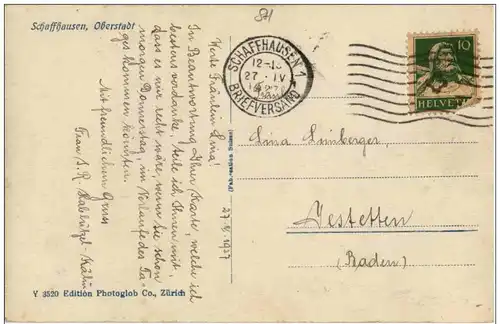 Schaffhausen, Oberstadt
SCHAFFHAUSEN 1
12-13
27. IV
1927
BRIEFVERSAND
10
HELVETIA
Werte Fräulein Lina!
In Beantwortung Ihrer Karte, welche ich
bestens verdanke, teile ich Ihnen mit,
dass es mir recht wäre, wenn Sie schon
morgen Donnerstag, im Verlaufe des Ta-
ges kommen könnten.
Mit freundlichem Gruss
Frau S. R.
27. 4. 1927
Lina
Jestetten
(Baden)
Y 3520 Edition Photoglob Co., Zürich